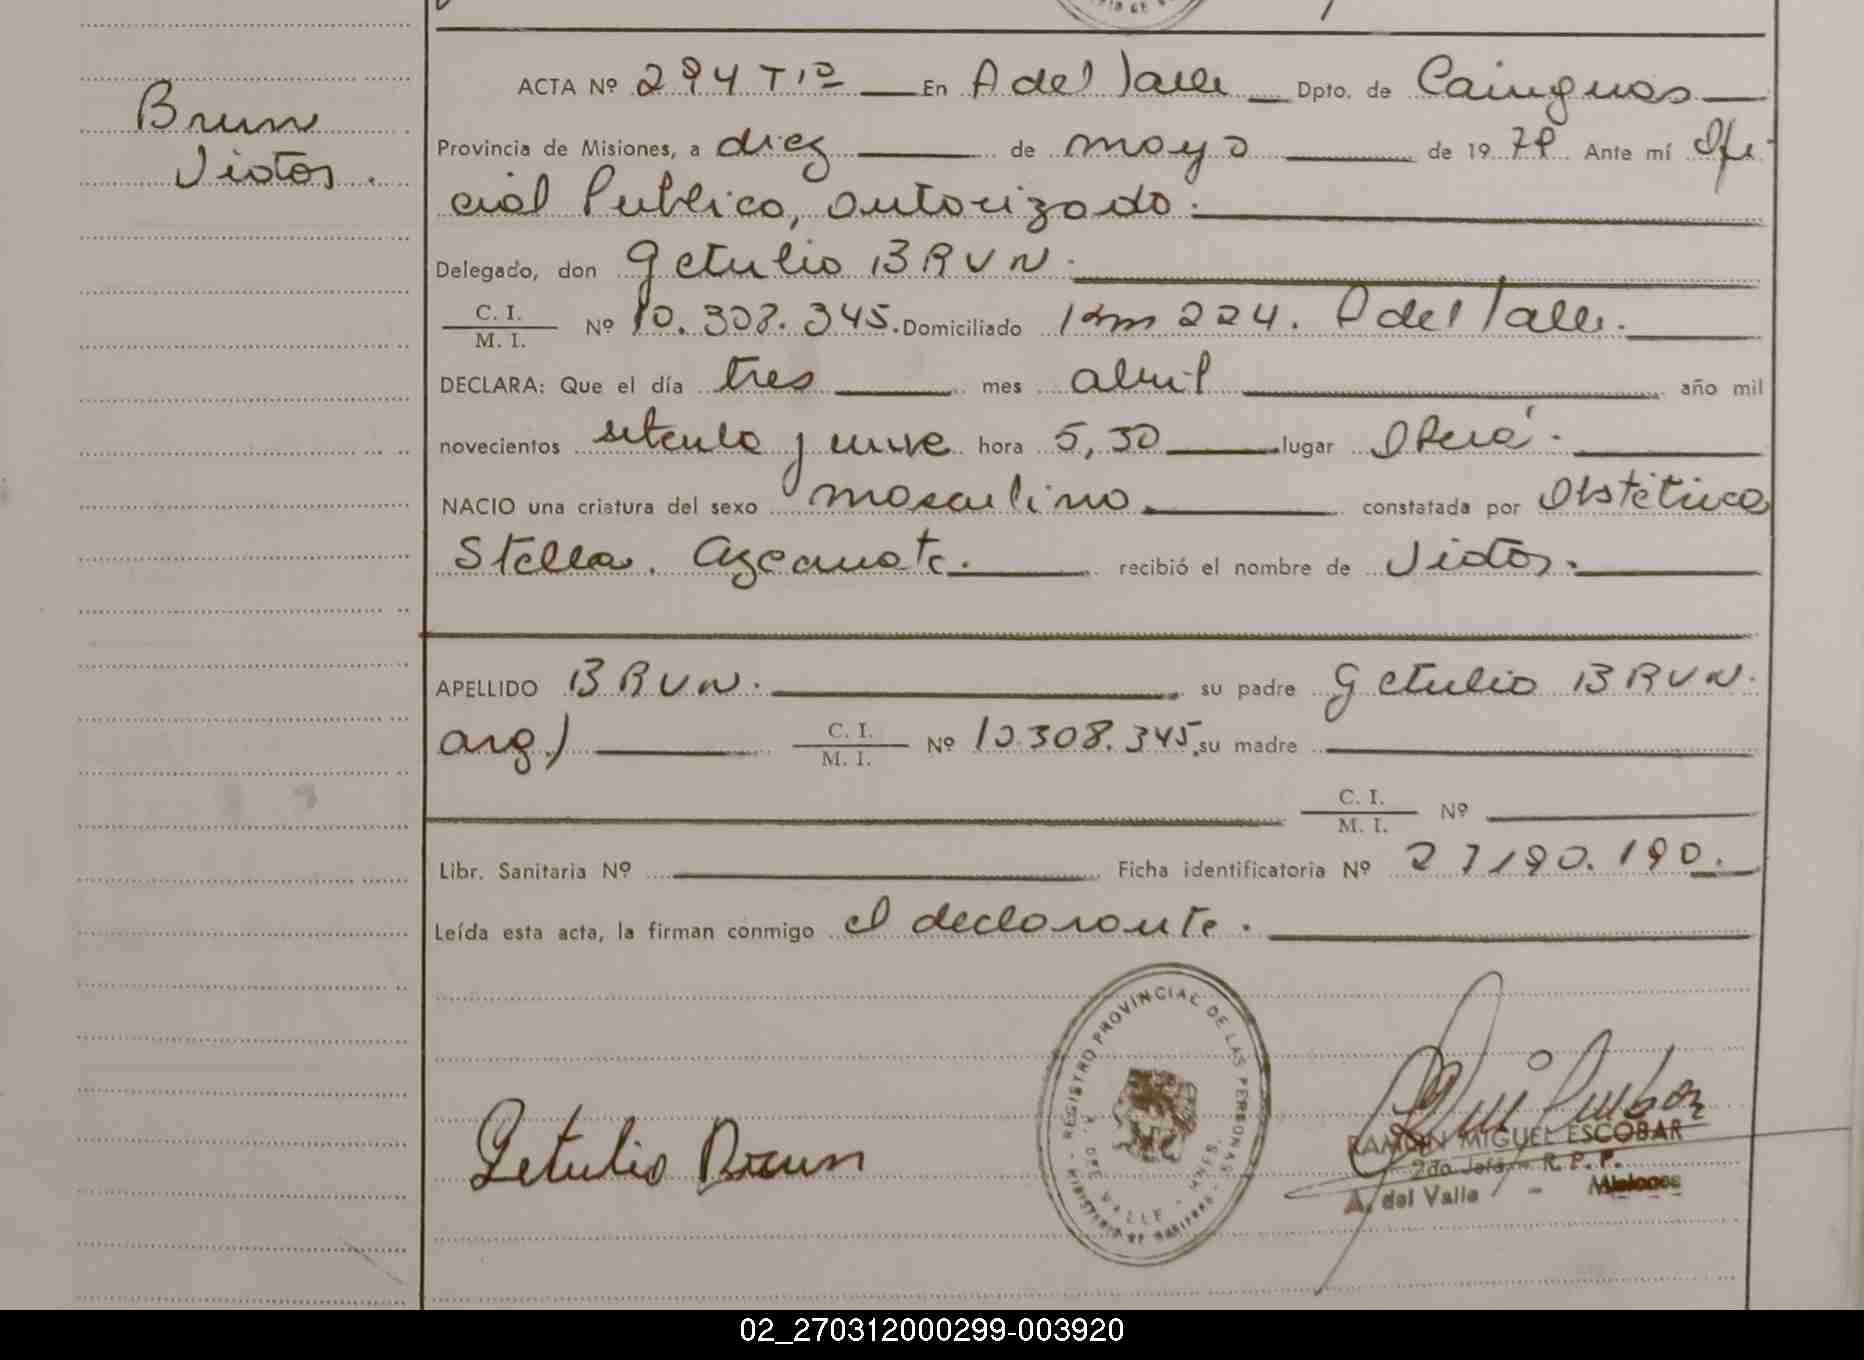 Brun
Victor.
ACTA Nº 294 Tº En A del Valle Dpto. de Cainguas
Provincia de Misiones, a diez de mayo de 1979 Ante mí Ofi-
cial Publico, autorizado.
Delegado, don Getulio BRUN.
C. I.
M. I. Nº 10.308.345. Domiciliado Km 224. A del Valle.
DECLARA: Que el día tres mes abril año mil
novecientos setenta y nueve hora 5,30 lugar Oberá.
NACIO una criatura del sexo masculino constatada por Obstétrica
Stella Azcarate. recibió el nombre de Victor.
APELLIDO BRUN. su padre Getulio BRUN.
arg.) C. I.
M. I. Nº 10.308.345, su madre
C. I.
M. I. Nº
Libr. Sanitaria Nº Ficha identificatoria Nº 27190.190.
Leída esta acta, la firman conmigo el declarante.
REGISTRO PROVINCIAL DE LAS PERSONAS
A. DEL VALLE - MNES
MINISTERIO DE GOBIERNO
Getulio Brun
RAMON MIGUEL ESCOBAR
2do Jefe R. P. P.
A. del Valle - Misiones
02_270312000299-003920